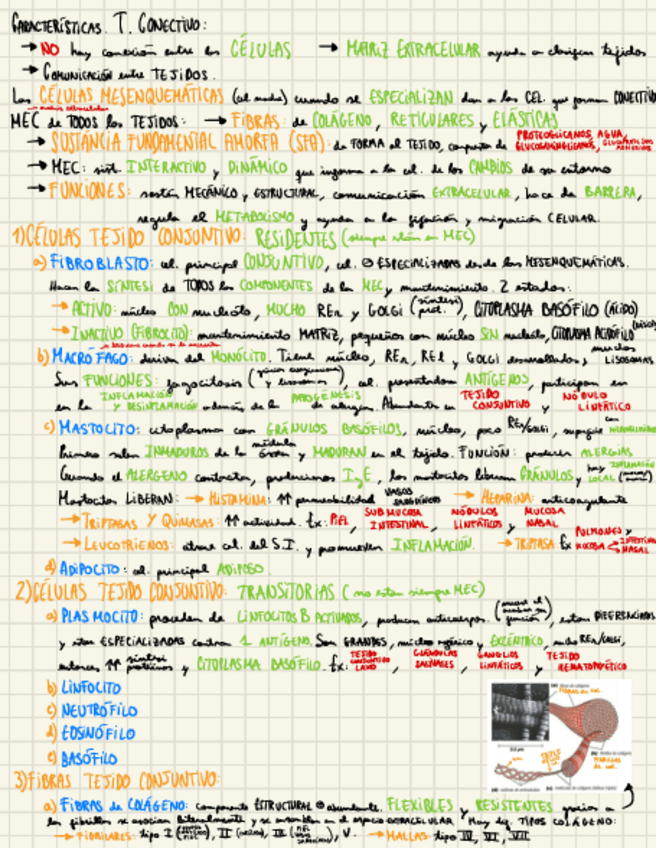 CARACTERÍSTICAS. T. CONECTIVO:
→ NO hay conexión entre las CÉLULAS → MATRIZ EXTRACELULAR ayuda a clasificar tejidos
→ COMUNICACIÓN entre TEJIDOS.
Las CÉLULAS MESENQUEMÁTICAS cuando se ESPECIALIZAN dan a las CEL. que forman CONECTIVO
MEC de TODOS los TEJIDOS: → FIBRAS: de COLÁGENO, RETICULARES y ELÁSTICAS
→ SUSTANCIA FUNDAMENTAL AMORFA (SFA): da FORMA al TEJIDO, compuesta de PROTEOGLICANOS, AGUA,
→ MEC: sist. INTERACTIVO y DINÁMICO que informa a la cel. de los CAMBIOS de su entorno
→ FUNCIONES: sostén MECÁNICO y ESTRUCTURAL, comunicación EXTRACELULAR, hace de BARRERA,
regula el METABOLISMO y ayuda a la fijación y migración CELULAR.
1) CÉLULAS TEJIDO CONJUNTIVO: RESIDENTES (siempre están en MEC)
a) FIBROBLASTO: cel. principal CONJUNTIVO, cel. ESPECIALIZADAS desde las MESENQUEMÁTICAS.
Hacen la SÍNTESIS de TODOS los COMPONENTES de la MEC y mantenimiento. 2 estados:
→ ACTIVO: núcleo CON nucleolo, MUCHO RER y GOLGI (síntesis prot.), CITOPLASMA BASÓFILO (ÁCIDO)
→ INACTIVO (FIBROCITO): mantenimiento MATRIZ, pequeños con núcleo SIN nucleolo, CITOPLASMA ACIDÓFILO
b) MACRÓFAGO: deriva del MONOCITO. Tiene núcleo, RER, REL y GOLGI desarrollados, muchos LISOSOMAS
Sus FUNCIONES: fagocitosis, cel. presentadora ANTÍGENOS, participan en
en la INFLAMACIÓN Y DESINFLAMACIÓN además de la Abundantes en TEJIDO CONJUNTIVO y NÓDULO LINFÁTICO
c) MASTOCITO: citoplasma con GRÁNULOS BASÓFILOS, núcleo, poco RER/GOLGI,
Primero salen INMADUROS de la médula ósea y MADURAN en el tejido. FUNCIÓN: producen ALERGIAS
Cuando el ALERGENO contacta, producimos IgE, los mastocitos liberan GRÁNULOS y hay INFLAMACIÓN LOCAL
Mastocitos LIBERAN: → HISTAMINA: ↑↑ permeabilidad VASOS SANGUÍNEOS → HEPARINA: anticoagulante
→ TRIPTASAS Y QUIMASAS: ↑↑ actividad. Ex: PIEL, SUBMUCOSA INTESTINAL, NÓDULOS LINFÁTICOS y MUCOSA NASAL
→ LEUCOTRIENOS: atrae cel. del S.I. y promueven INFLAMACIÓN. → TRIPTASA: Ex PULMONES y MUCOSA INTESTINAL NASAL
d) ADIPOCITO: cel. principal ADIPOSO.
2) CÉLULAS TEJIDO CONJUNTIVO: TRANSITORIAS (no están siempre MEC)
a) PLASMOCITO: proceden de LINFOCITOS B ACTIVADOS, producen anticuerpos. están DIFERENCIADAS
y están ESPECIALIZADAS contra 1 ANTÍGENO. Son GRANDES, núcleo esférico y EXCÉNTRICO, mucho RER/GOLGI,
entonces ↑↑ síntesis proteínas y CITOPLASMA BASÓFILO. Ex: TEJIDO CONJUNTIVO LAXO, GLÁNDULAS SALIVALES, GANGLIOS LINFÁTICOS y TEJIDO HEMATOPOYÉTICO
b) LINFOCITO
c) NEUTRÓFILO
d) EOSINÓFILO
e) BASÓFILO
3) FIBRAS TEJIDO CONJUNTIVO:
a) FIBRAS de COLÁGENO: componente ESTRUCTURAL abundante. FLEXIBLES y RESISTENTES gracias a
las fibrillas se asocian lateralmente y se ensamblan en el espacio EXTRACELULAR. Hay TIPOS COLÁGENO:
→ FIBRILARES: tipo I, II, III, V. → MALLAS: tipo IV, VI, VII